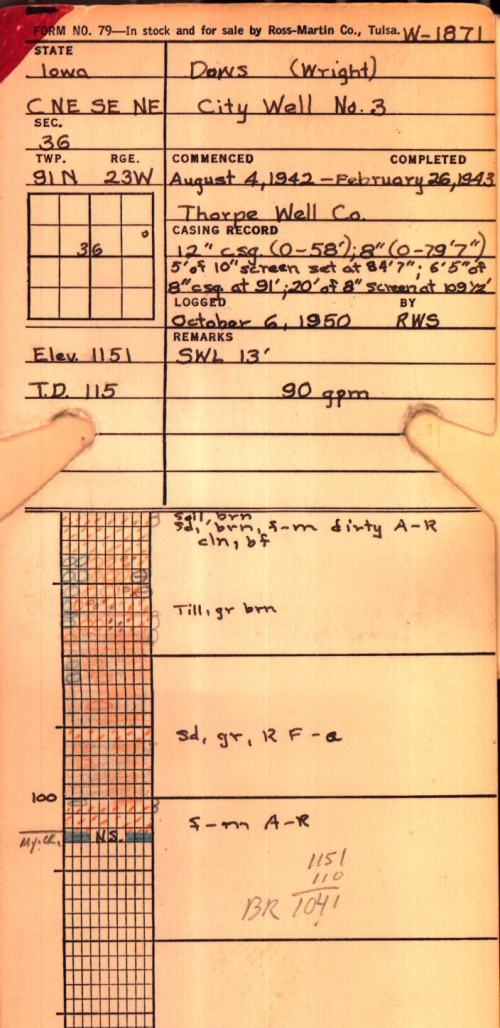 FORM NO. 79—In stock and for sale by Ross-Martin Co., Tulsa. W-1871
STATE
Iowa Dows (Wright)
C NE SE NE City Well No. 3
SEC.
36
TWP. RGE. COMMENCED COMPLETED
91N 23W August 4, 1942 – February 26, 1943
Thorpe Well Co.
36
CASING RECORD
12" csg (0-58'); 8" (0-79'7")
5' of 10" screen set at 84'7"; 6'5" of
8" csg at 91'; 20' of 8" screen at 109½'
LOGGED BY
October 6, 1950 RWS
REMARKS
Elev. 1151 SWL 13'
T.D. 115 90 gpm
Soil, brn
Sd, brn, f-m dirty A-R
cln, bf
Till, gr brn
Sd, gr, R F-a
100
f-m A-R
N.S.
1151
110
BR 1041